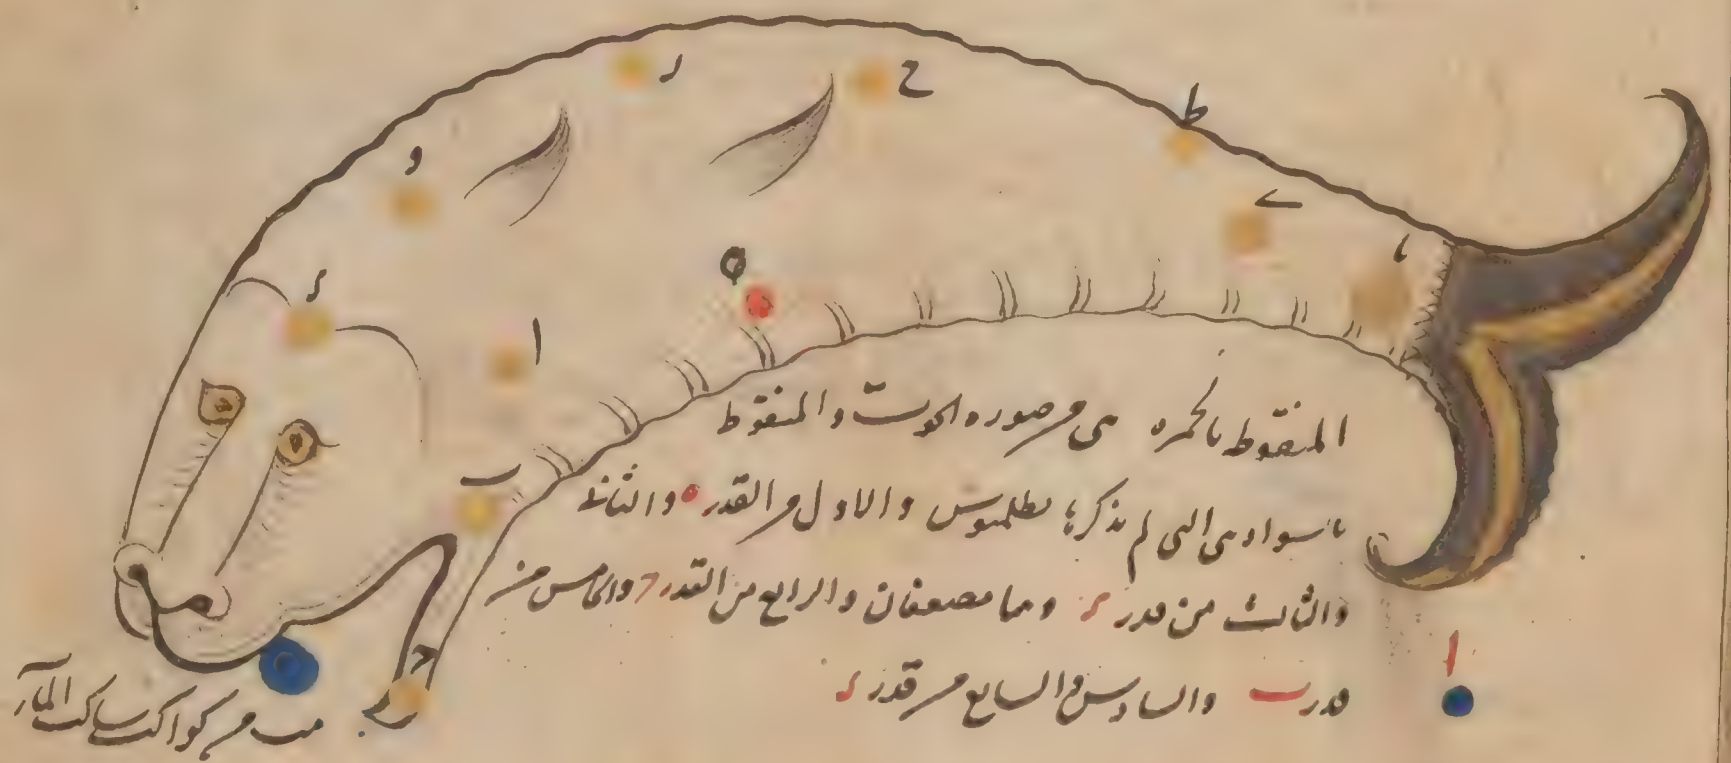 ر
ح
ط
و
ى
د
ه
ا
ب
ح
المنقوطه بالحمره هى مں صوره الحوت والمنقوط
باسواد هى التى لم يذكرها بطلميوس والاول مں القدر ه والثانى
والثالث من قدر د وهما مضعفان والرابع من القدر ح والخامس من
قدر ب والسادس والسابع مں قدر د
ا
مں كواكب ساكب المآ